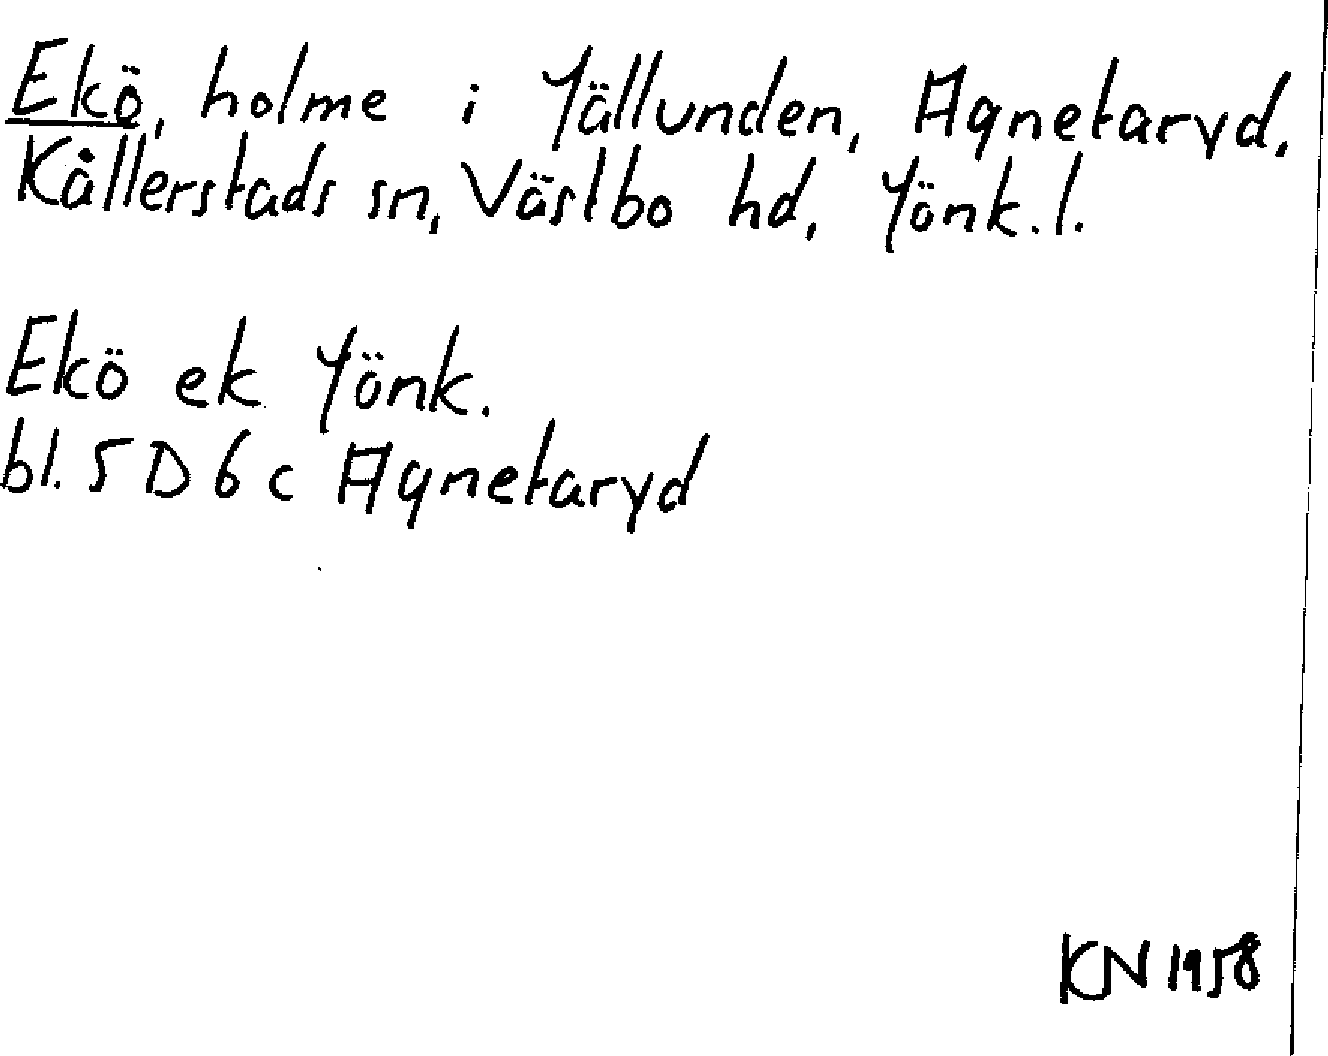 Ekö, holme i Jällunden, Agnetaryd,
Kållerstads sn, Västbo hd, Jönk. l.
Ekö ek Jönk.
bl. 5 D 6 c Agnetaryd
KN 1958